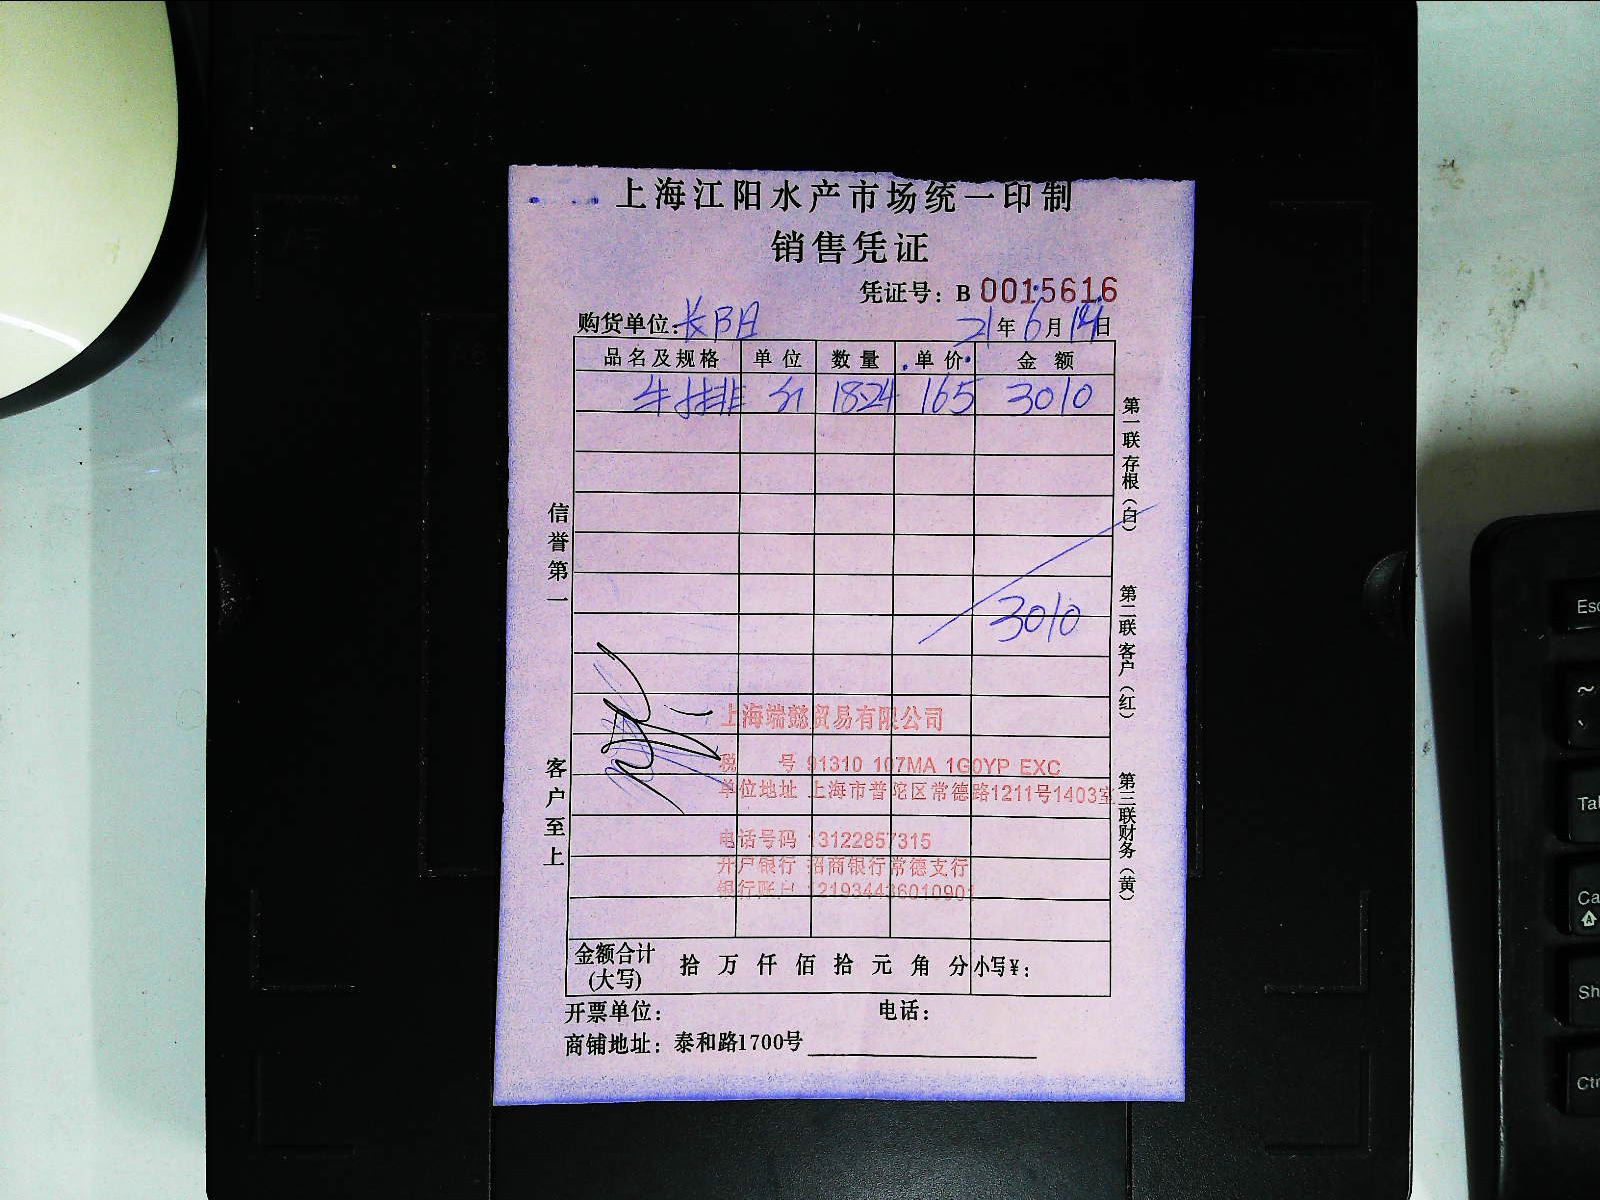 上海江阳水产市场统一印制
销售凭证
凭证号：B 0015616
购货单位：长阳 21年6月14日
品名及规格 单位 数量 单价 金额
牛排 斤 18.24 165 3010
3010
上海端懿贸易有限公司
税 号 91310 107MA 1G0YP EXC
单位地址 上海市普陀区常德路1211号1403室
电话号码 13122857315
开户银行 招商银行常德支行
银行账户 121934436010901
金额合计(大写) 拾 万 仟 佰 拾 元 角 分 小写¥：
开票单位： 电话：
商铺地址：泰和路1700号
信誉第一
客户至上
第一联 存根（白）
第二联 客户（红）
第三联 财务（黄）
Esc
~
Tab
Ca
A
Sh
Ctr